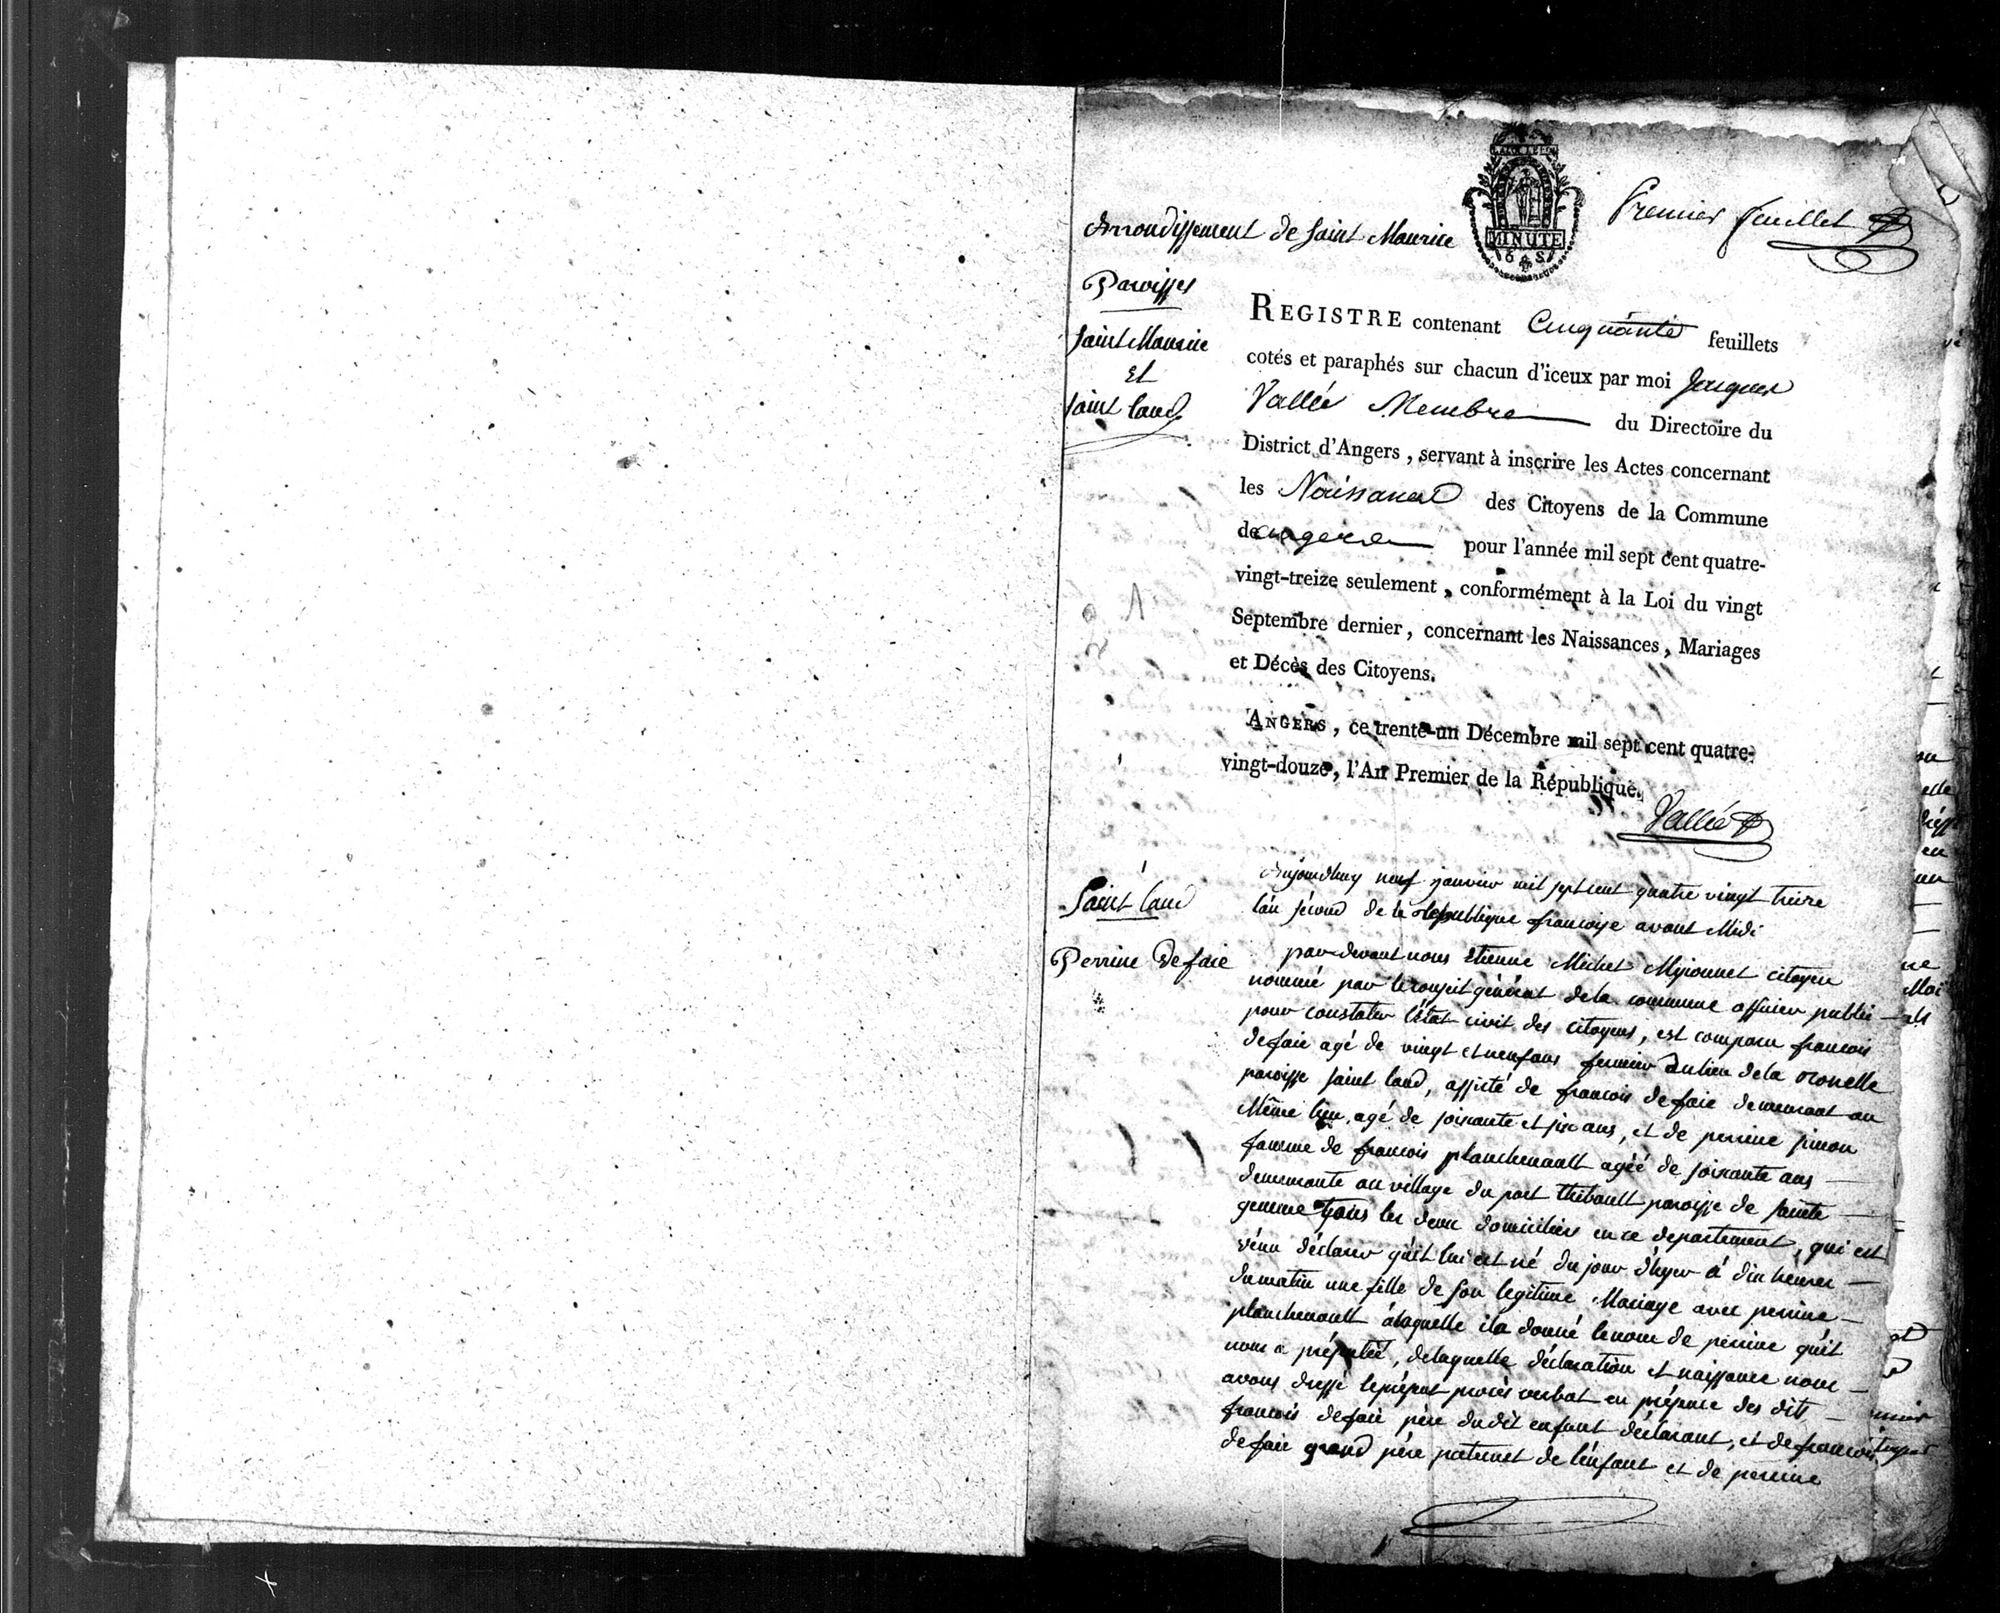 Premier feuillet
LA LOI LE ROI
MINUTE
6 S
Arrondissement de Saint Maurice
Paroisses
Saint Maurice
et
Saint laud
REGISTRE contenant Cinquante feuillets
cotés et paraphés sur chacun d'iceux par moi Jacques
Vallée Membre du Directoire du
District d'Angers, servant à inscrire les Actes concernant
les Naissances des Citoyens de la Commune
de angers pour l'année mil sept cent quatre-
vingt-treize seulement, conformément à la Loi du vingt
Septembre dernier, concernant les Naissances, Mariages
et Décès des Citoyens.
ANGERS, ce trente-un Décembre mil sept cent quatre-
vingt-douze, l'An Premier de la République.
Vallée
Saint laud
Perrine defaie
aujourdhuy neuf janvier mil sept cent quatre vingt treize
l'an sécond de la république françoise avant Midi
par devant nous Etienne Michel Myionnet citoyen
nommé par le conseil général de la commune officier public
pour constater l'état civil des citoyens, est comparu francois
defaie agé de vingt et neuf ans fermier du lieu de la
paroisse saint laud, assisté de francois defaie demeurant au
Même lieu, agé de soixante et six ans, et de perrine simon
femme de francois planchenault agée de soixante ans
demeurante au village du port thibault paroisse de sainte
gemme tous les deux domiciliés en ce departement, qui est
vénu déclarer qu'il lui est né du jour d'hyer à dix heures
du matin une fille de son legitime Mariage avec perrine
planchenault à laquelle il a donné le nom de perrine qu'il
nous a présentée, de laquelle déclaration et naissance nous
avons dressé le présent procès verbal en présence des dits
francois defaie père du dit enfant déclarant, et de francois
defaie grand père paternel de l'enfant et de perrine